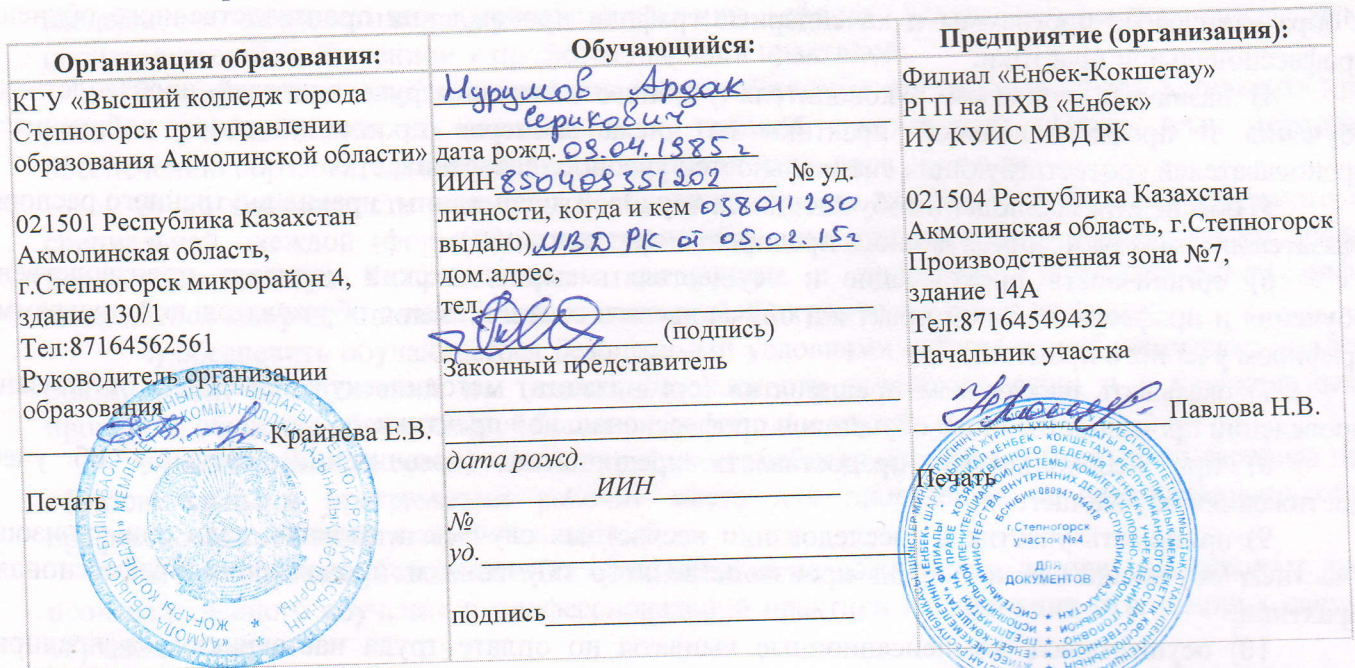 Организация образования:
КГУ «Высший колледж города
Степногорск при управлении
образования Акмолинской области»
021501 Республика Казахстан
Акмолинская область,
г.Степногорск микрорайон 4,
здание 130/1
Тел:87164562561
Руководитель организации
образования
Крайнева Е.В.
Печать
Обучающийся:
Нурумов Ардак
Серикович
дата рожд. 09.04.1985 г
ИИН 850409351202 № уд.
личности, когда и кем 038011290
выдано), МВД РК от 05.02.15г
дом.адрес,
тел.
(подпись)
Законный представитель
дата рожд.
ИИН
№
уд.
подпись
Предприятие (организация):
Филиал «Енбек-Кокшетау»
РГП на ПХВ «Енбек»
ИУ КУИС МВД РК
021504 Республика Казахстан
Акмолинская область, г.Степногорск
Производственная зона №7,
здание 14А
Тел:87164549432
Начальник участка
Павлова Н.В.
Печать
г.Степногорск
участок №4
ДЛЯ
ДОКУМЕНТОВ